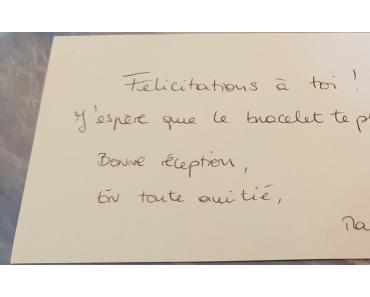 Félicitations à toi !
J'espère que le bracelet te p
Bonne réception,
En toute amitié,
Ma